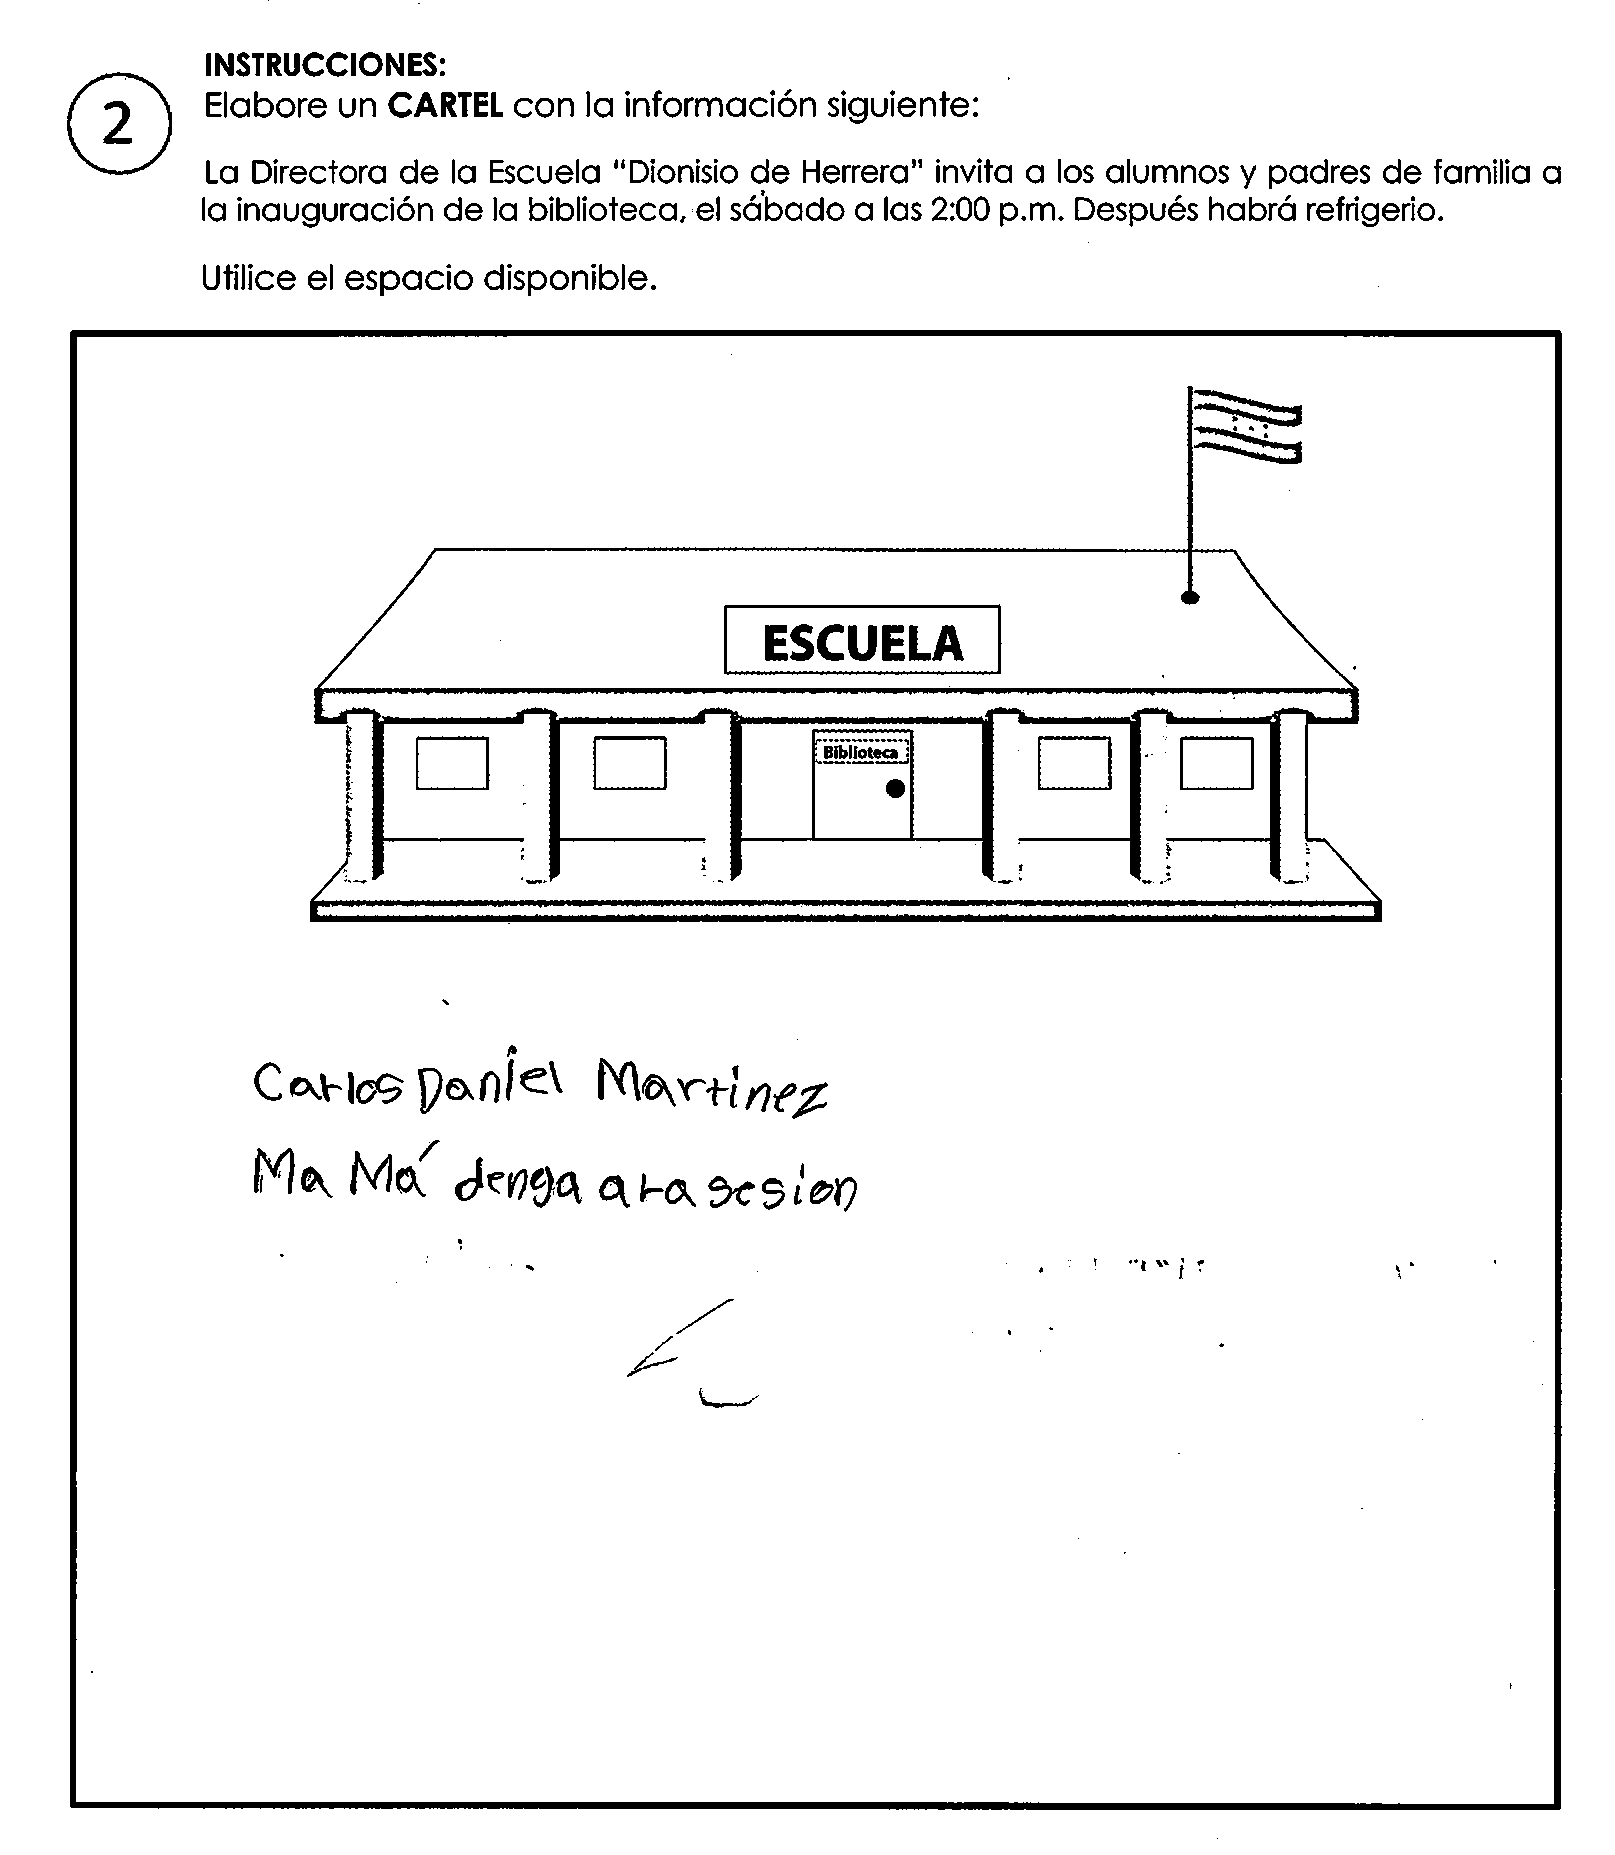 INSTRUCCIONES:
2
Elabore un CARTEL con la información siguiente:
La Directora de la Escuela "Dionisio de Herrera" invita a los alumnos y padres de familia a
la inauguración de la biblioteca, el sábado a las 2:00 p.m. Después habrá refrigerio.
Utilice el espacio disponible.
ESCUELA
Biblioteca
Carlos Daniel Martinez
Ma Má denga a ra sesion